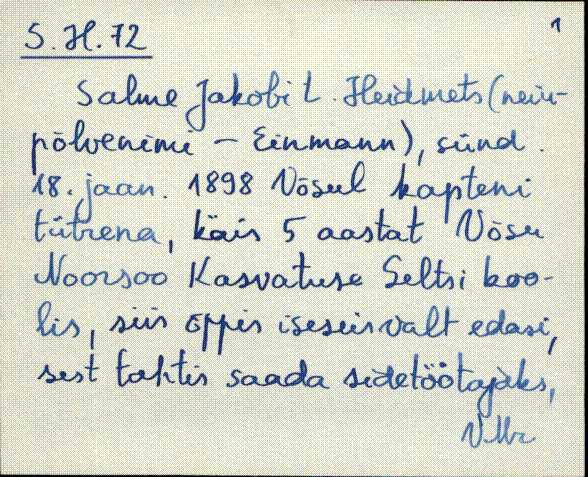 1
S. H. 72
Salme Jakobi t. Heidmets (neiu-
põlvenimi - Einmann), sünd.
18. jaan. 1898 Võsul kapteni
tütrena, käis 5 aastat Võsu
Noorsoo Kasvatuse Seltsi koo-
lis, siis õppis iseseisvalt edasi,
sest tahtis saada sidetöötajaks,